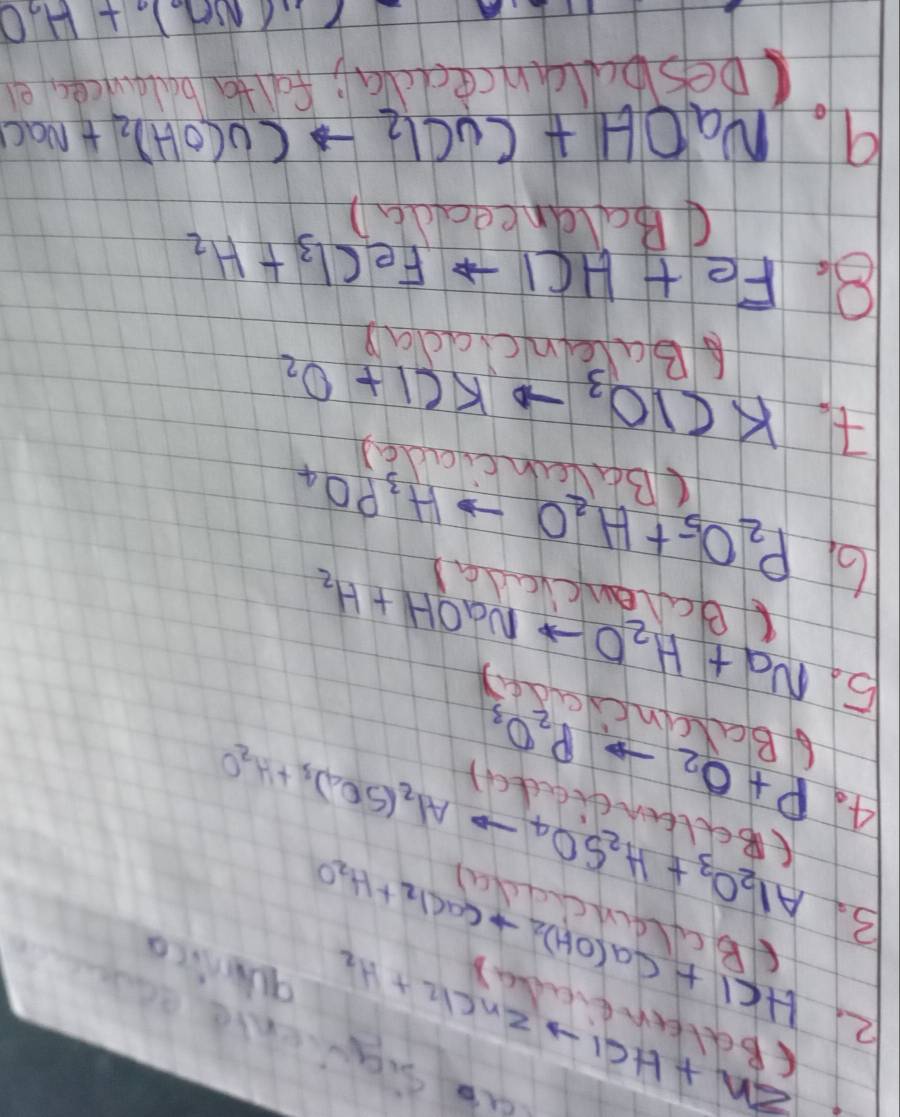 siguiente
química
Zn + HCl → ZnCl2 + H2
(Balanciada)
2. HCl + Ca(OH)2 → CaCl2 + H2O
(Balanciada)
3. Al2O3 + H2SO4 → Al2(SO4)3 + H2O
(Balanciada)
4. P + O2 → P2O3
(Balanciada)
5. Na + H2O → NaOH + H2
(Balanciada)
6. P2O5 + H2O → H3PO4
(Balanciada)
7. KClO3 → KCl + O2
(Balanciada)
8. Fe + HCl → FeCl3 + H2
(Balanceada)
9. NaOH + CuCl2 → Cu(OH)2 + NaCl
(Desbalanceada; falta balancea el
+ H2O